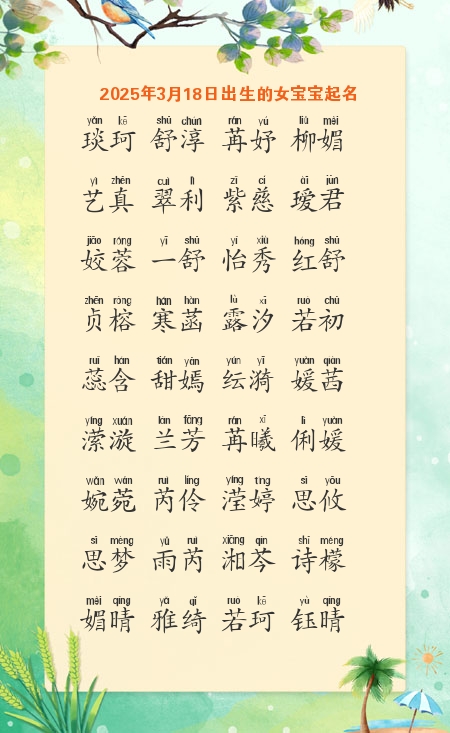 2025年3月18日出生的女宝宝起名
yǎn kē shū chún rán yú liǔ mèi
琰珂 舒淳 苒妤 柳媚
yì zhēn cuì lì zǐ cí ài jūn
艺真 翠利 紫慈 瑷君
jiāo róng yī shū yí xiù hóng shū
姣蓉 一舒 怡秀 红舒
zhēn róng hán hàn lù xī ruò chū
贞榕 寒菡 露汐 若初
ruǐ hán tián yān yún yī yuàn qiàn
蕊含 甜嫣 纭漪 媛茜
yíng xuán lán fāng rán xī lì yuàn
潆漩 兰芳 苒曦 俐媛
wǎn wǎn ruì líng yíng tíng sī yōu
婉菀 芮伶 滢婷 思攸
sī mèng yǔ ruì xiāng qín shī méng
思梦 雨芮 湘芩 诗檬
mèi qíng yǎ qǐ ruò kē yù qíng
媚晴 雅绮 若珂 钰晴